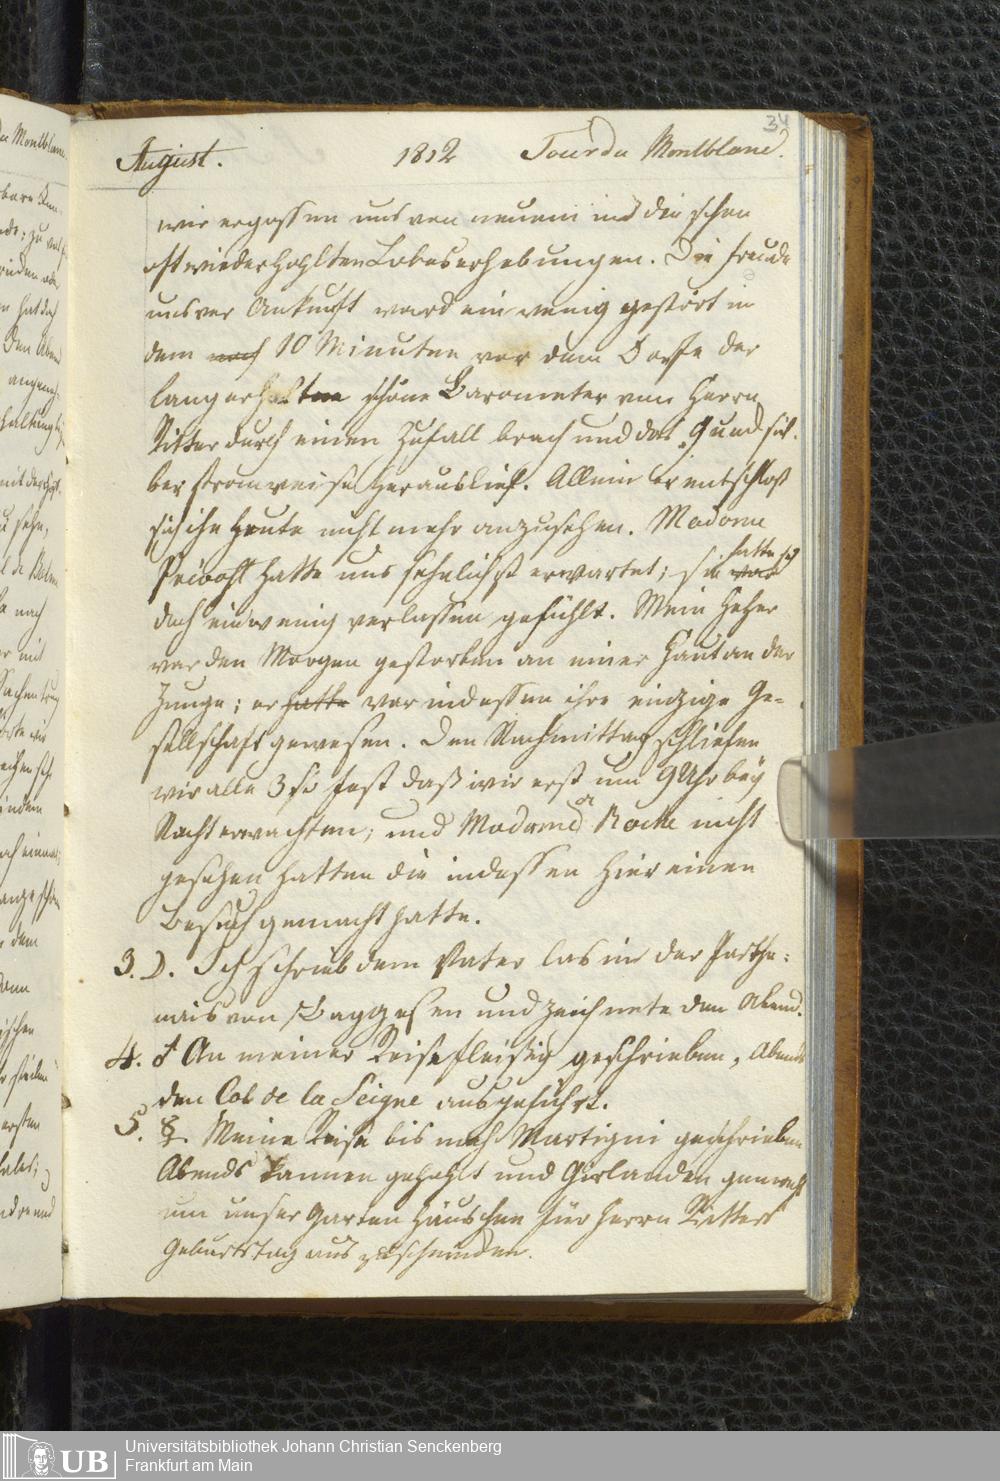 34
August. 1812 Tour du Montblanc.
wir ergossen uns von neuem in die schon
oft wiederhohlten Lobeserhebungen. Die Freude
unsrer Ankunft ward ein wenig gestört in
dem noch 10 Minuten vor dem Dorfe der
lang erhaltne schöne Barometer von Herrn
Ritter durch einen Zufall brach und das Quecksil-
ber stromweise herauslief. Allein er entschloß
sich ihn heute nicht mehr anzusehen. Madame
hatte uns sehnlichst erwartet; sie war hatte sich
doch ein wenig verlassen gefühlt. Mein Heher
war den Morgen gestorben an einer Haut an der
Zunge; er hatte war indessen ihre einzige Ge-
sellschaft gewesen. Den Nachmittag schliefen
wir alle 3 so fest daß wir erst um 9 Uhr bey
Nacht erwachten; und Madame de la Roche nicht
gesehen hatten die indessen hier einen
Besuch gemacht hatte.
3. ☽. Ich schrieb dem Vater las in der Parthe-
nais von Baggesen und zeichnete den Abend.
4. ♂ An meiner Reise fleißig geschrieben, Abends
den Col de la Seigne ausgeführt.
5. ☿. Meine Reise bis nach Martigni geschrieben
Abends Tannen gehohlt und Girlanden gemacht
um unser Gartenhäuschen für Herrn Ritters
Geburtstag aus zu schmücken.
UB
Universitätsbibliothek Johann Christian Senckenberg
Frankfurt am Main